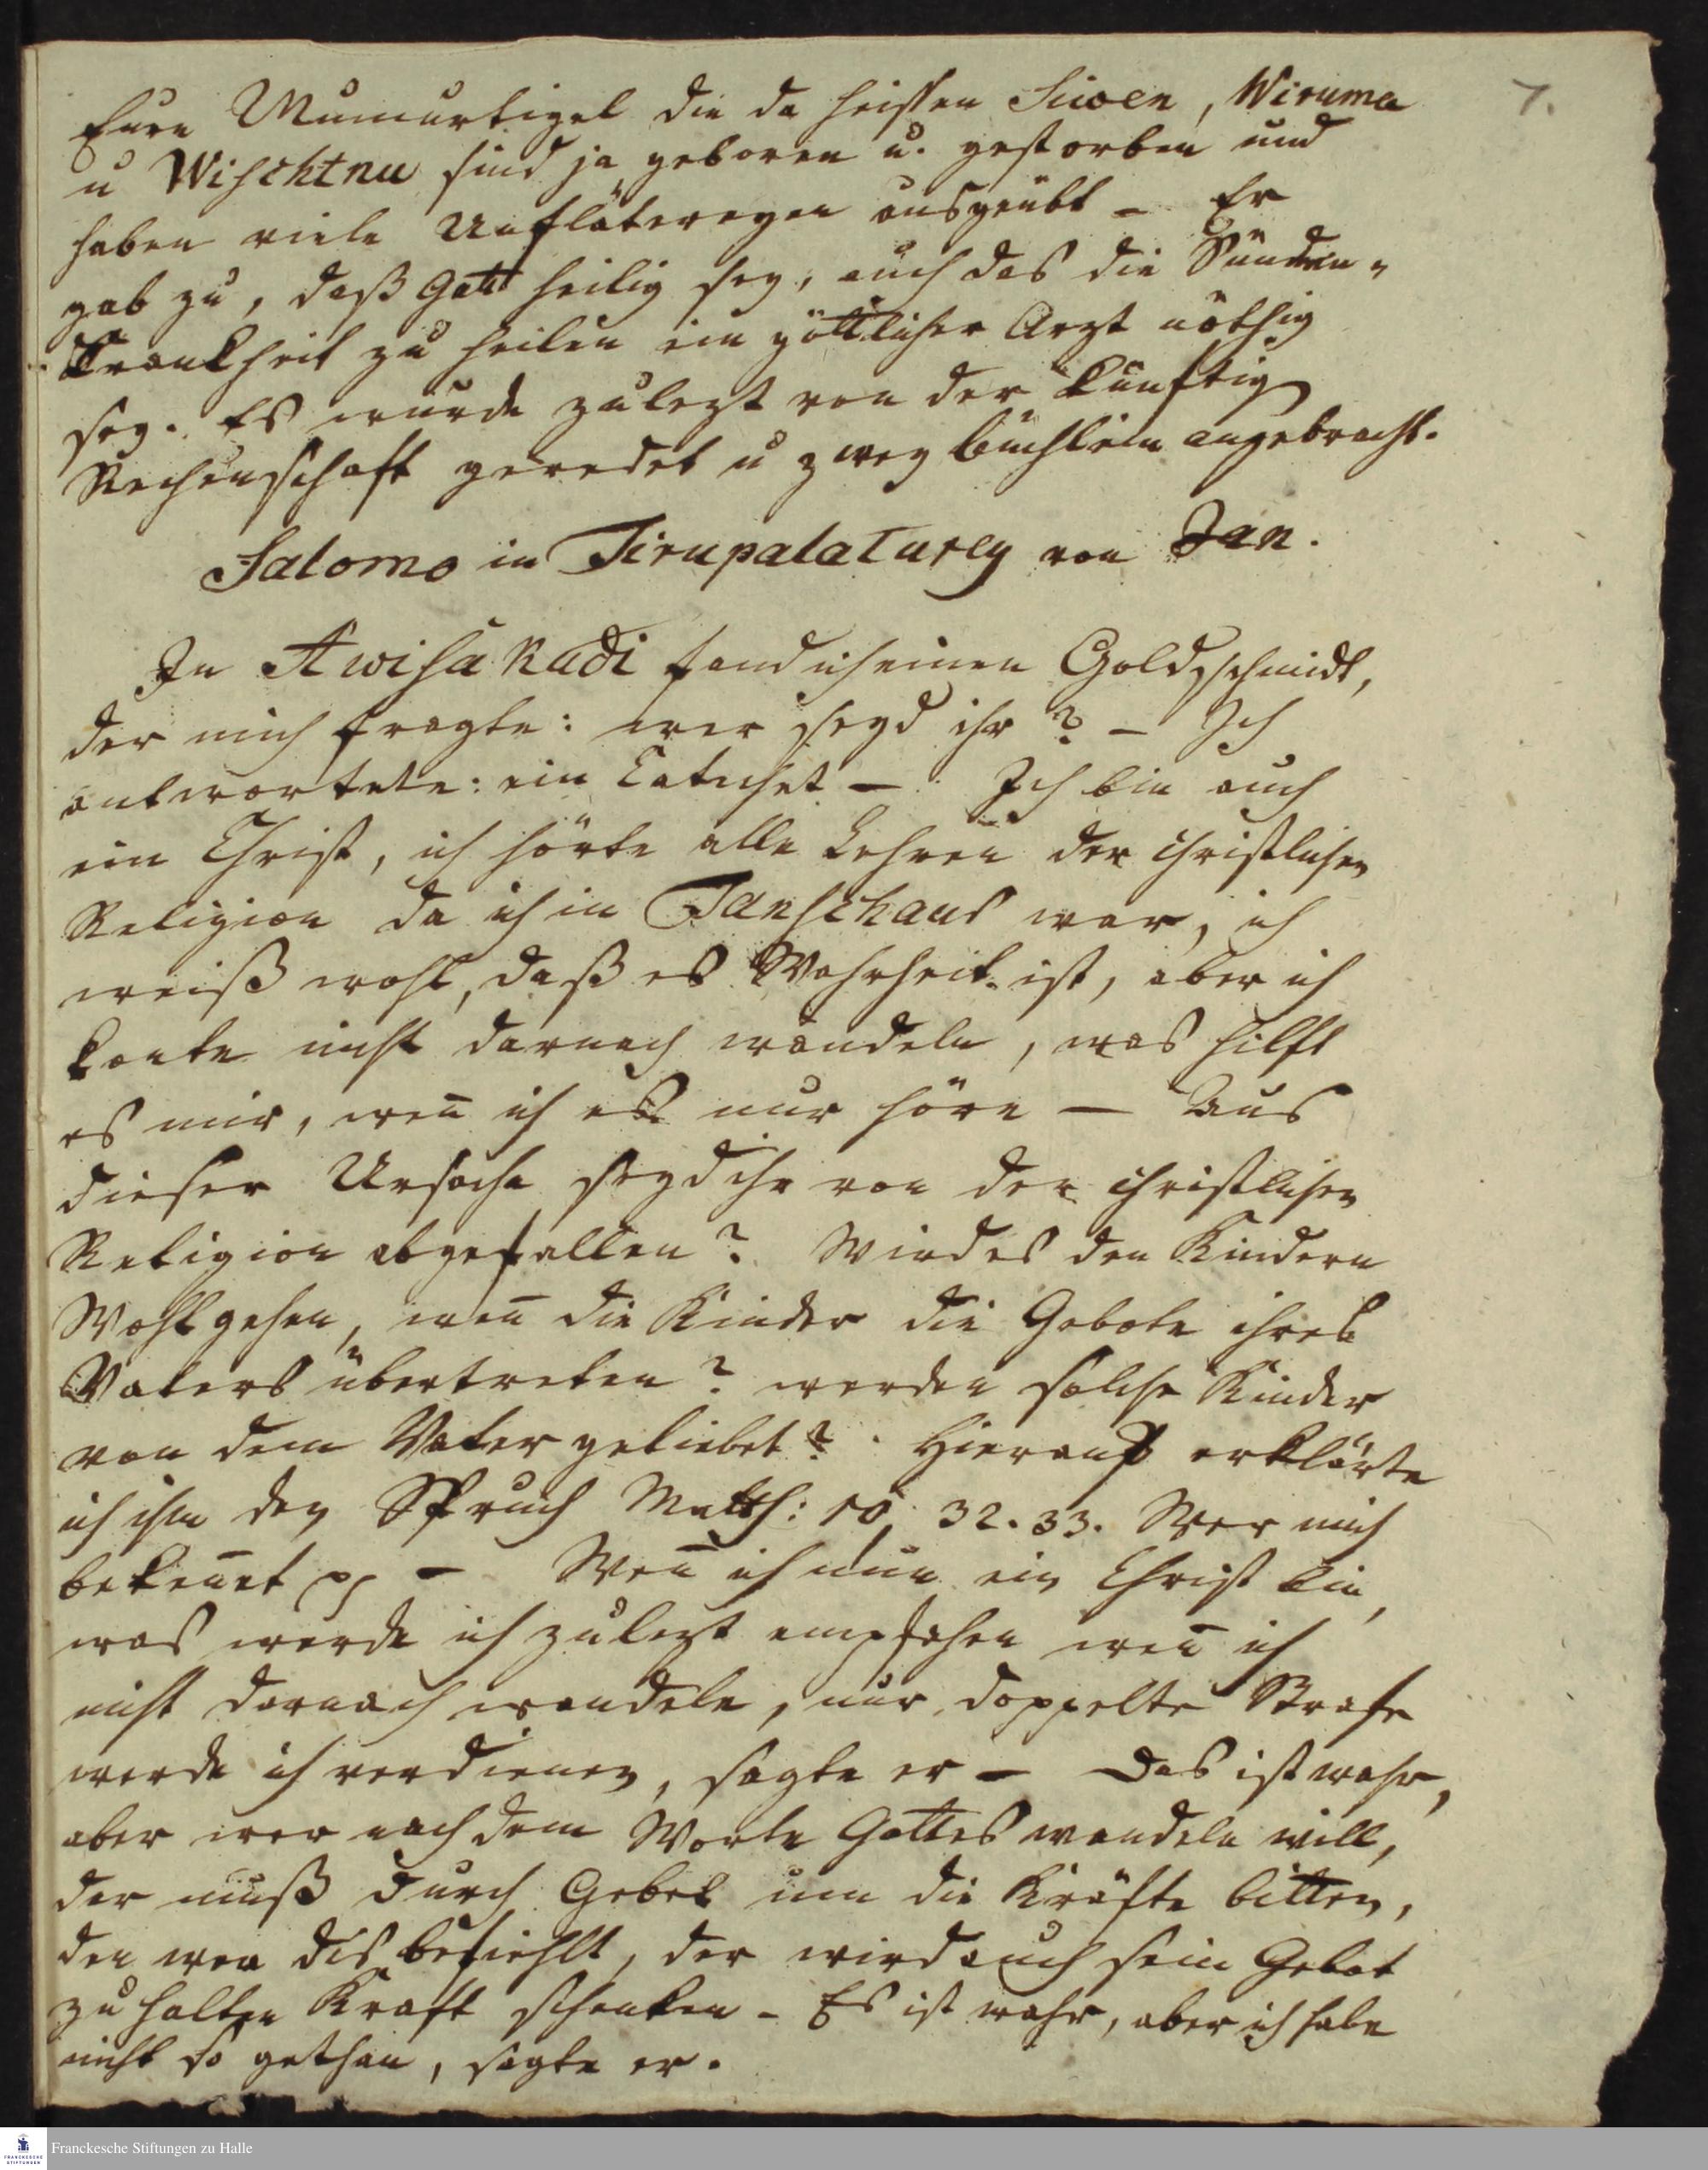 7.
Eure Mumurtigel die da heissen Siwen, Wiruma
u Wischtnu sind ja geboren u. gestorben und
haben viele Unfläthereyen ausgeübt – Er
gab zu, daß Gott heilig sey, auch das die Sünden-
Krankheit zu heilen ein göttlicher Arzt nöthig
sey. Es wurde zulezt von der künftig
Rechenschaft geredet u zwey büchlein angebracht.
Salomo in Tirupalaturey von Jan.
In Awisakadi fand ich einen Goldschmidt,
der mich fragte: wer seyd ihr? – Ich
antwortete: ein Catechet –. Ich bin auch
ein Christ, ich hörte alle Lehren der christlichen
Religion da ich in Tanschaur war, ich
weiß wohl, daß es Wahrheit ist, aber ich
konte nicht darnach wandeln, was hilft
es mir, weñ ich es nur höre – Aus
dieser Ursache seyd ihr von der christlichen
Religion abgefallen? Wird es den Kindern
Wohl gehen, weñ die Kinder die Gebote ihres
Vaters übertreten? werden solche Kinder
von dem Vater geliebet? Hierauf erklärte
ich ihm den Spruch Matth: 10, 32. 33. Wer mich
bekeñet p – Weñ ich nun ein Christ bin,
was werde ich zulezt empfahen weñ ich
nicht darnach wandele, nur doppelte Strafe
werde ich verdienen, sagte er – Das ist wahr,
aber wer nach dem Worte Gottes wandeln will,
der muß durch Gebet um die Kräfte bitten,
den wer dis befiehlt, der wird auch sein Gebot
zu halten Kraft schenken – Es ist wahr, aber ich habe
nicht so gethan, sagte er.
Franckesche Stiftungen zu Halle
FRANCKESCHE
STIFTUNGEN